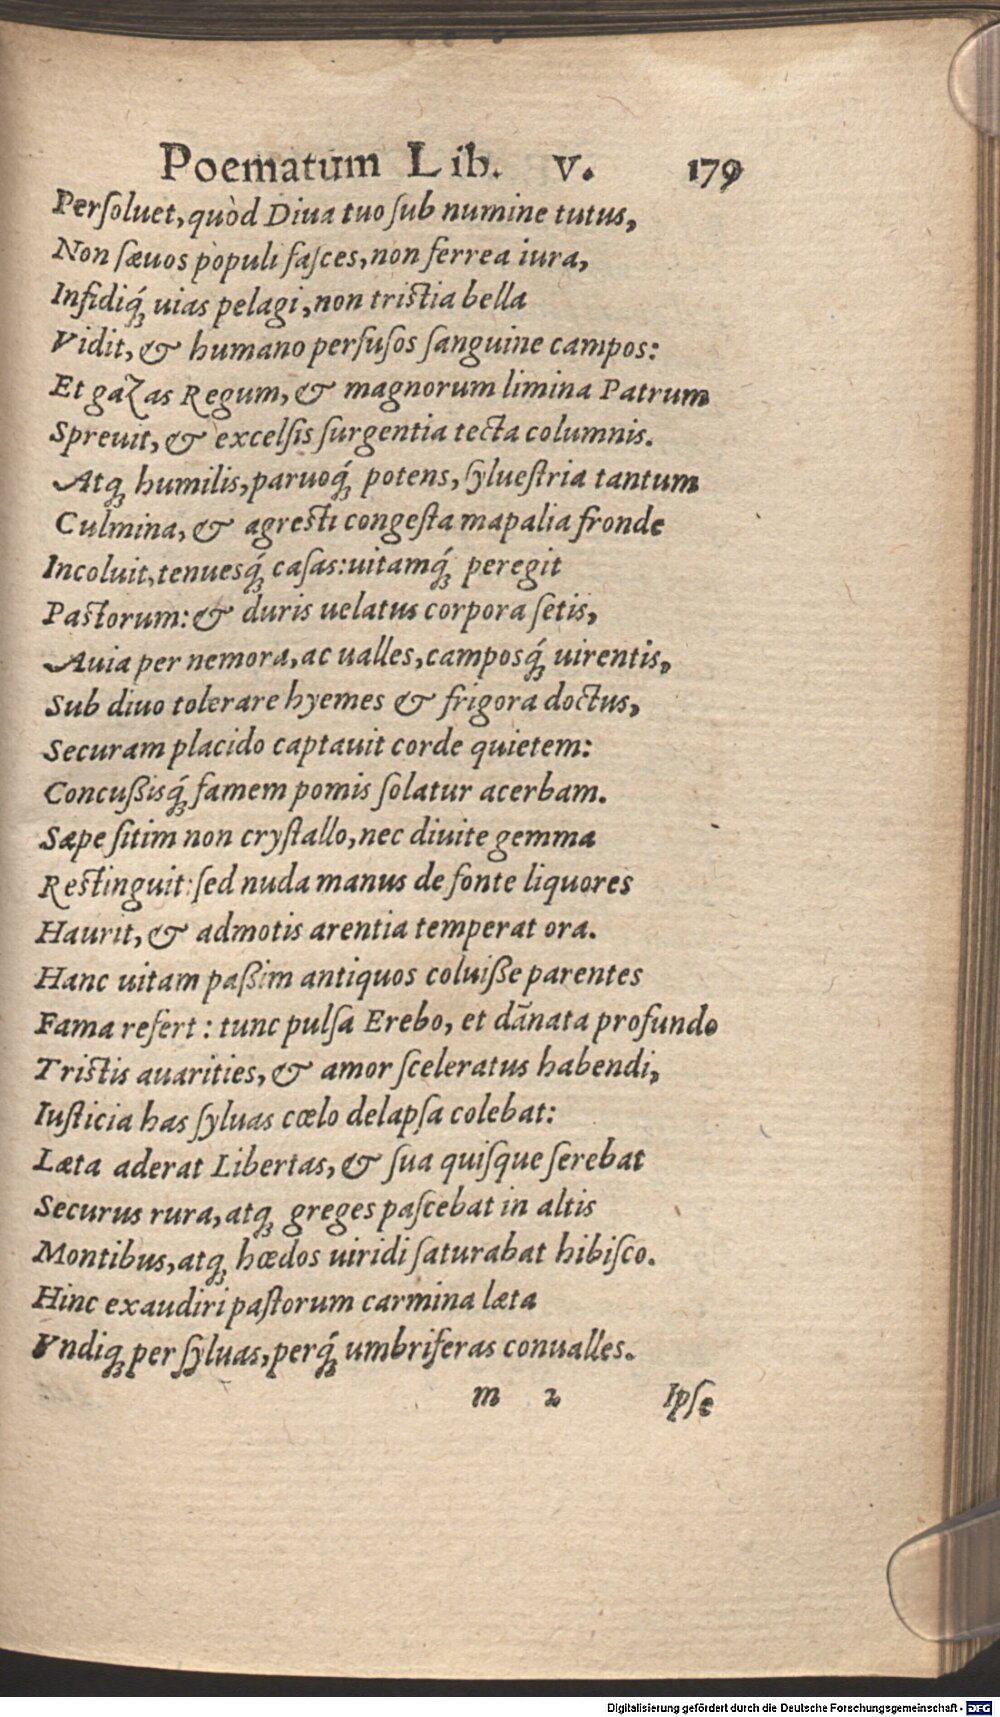 Poematum Lib. V. 179
Perſoluet, quòd Diua tuo ſub numine tutus,
Non ſæuos populi faſces, non ferrea iura,
Infidiq́ꝫ uias pelagi, non triſtia bella
Vidit, & humano perfuſos ſanguine campos:
Et gazas Regum, & magnorum limina Patrum
Spreuit, & excelſis ſurgentia tecta columnis.
Atqꝫ humilis, paruoq́ꝫ potens, ſylueſtria tantum
Culmina, & agreſti congeſta mapalia fronde
Incoluit, tenuesq́ꝫ caſas: uitamq́ꝫ peregit
Paſtorum: & duris uelatus corpora ſetis,
Auia per nemora, ac ualles, camposq́ꝫ uirentis,
Sub diuo tolerare hyemes & frigora doctus,
Securam placido captauit corde quietem:
Concußisq́ꝫ famem pomis ſolatur acerbam.
Sæpe ſitim non cryſtallo, nec diuite gemma
Reſtinguit: ſed nuda manus de fonte liquores
Haurit, & admotis arentia temperat ora.
Hanc uitam paßim antiquos coluiße parentes
Fama refert: tunc pulſa Erebo, et dãnata profundo
Triſtis auarities, & amor ſceleratus habendi,
Iuſticia has ſyluas cœlo delapſa colebat:
Læta aderat Libertas, & ſua quiſque ſerebat
Securus rura, atqꝫ greges paſcebat in altis
Montibus, atqꝫ hœdos uiridi ſaturabat hibiſco.
Hinc exaudiri paſtorum carmina læta
Vndiqꝫ per ſyluas, perq́ꝫ umbriferas conualles.
m 2 Ipſe
Digitalisierung gefördert durch die Deutsche Forschungsgemeinschaft - DFG